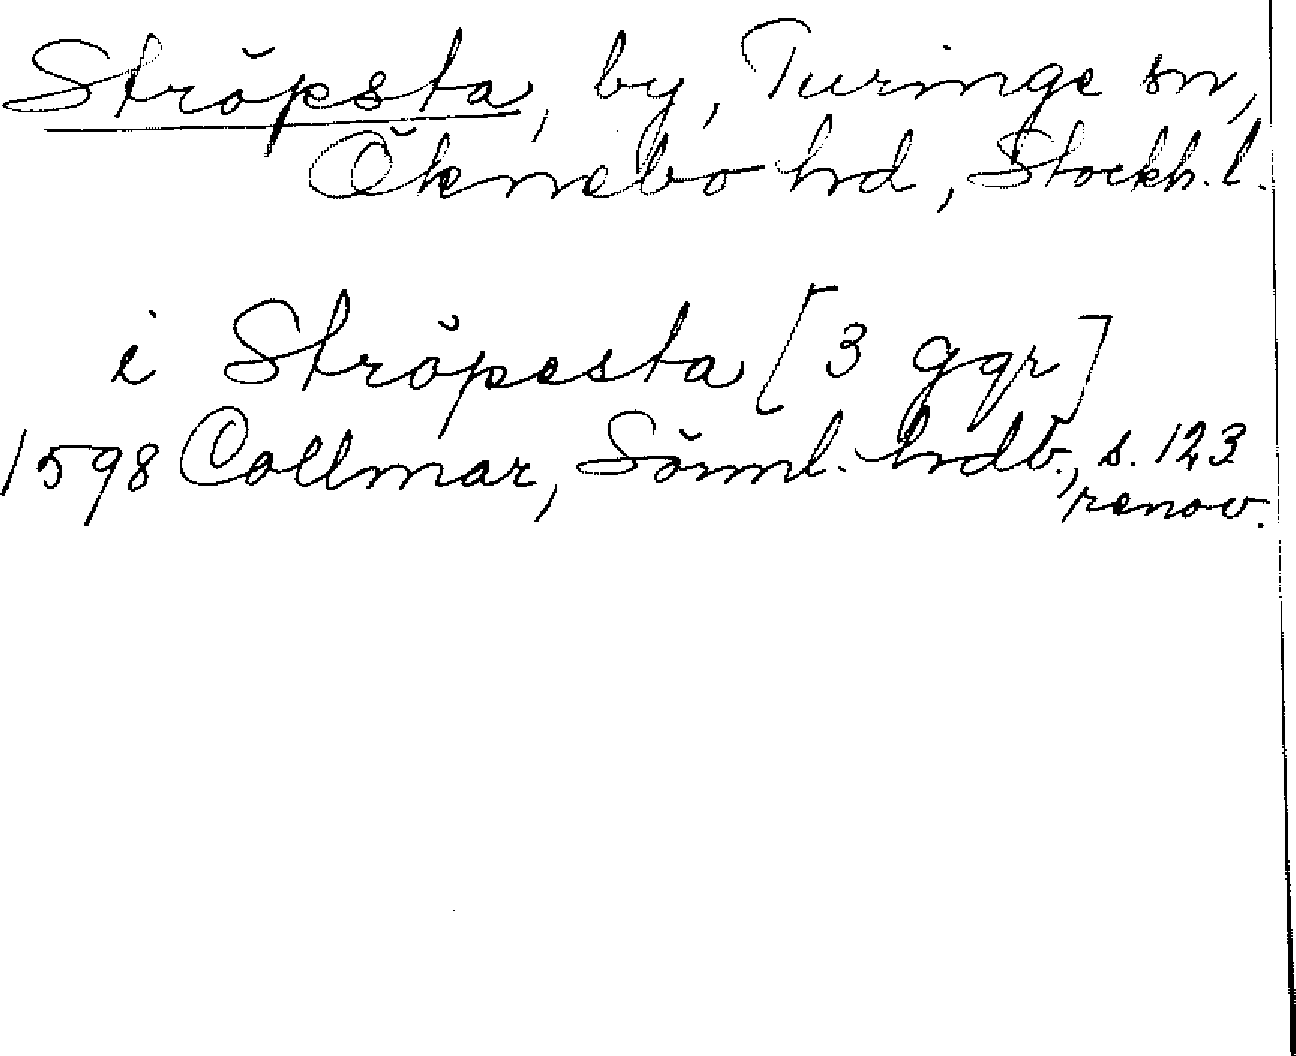 Ströpsta, by, Turinge sn,
Öknebo hd, Stockh. l.
i Ströpesta [3 ggr]
1598 Collmar, Sörml. hdb., s. 123
renov.